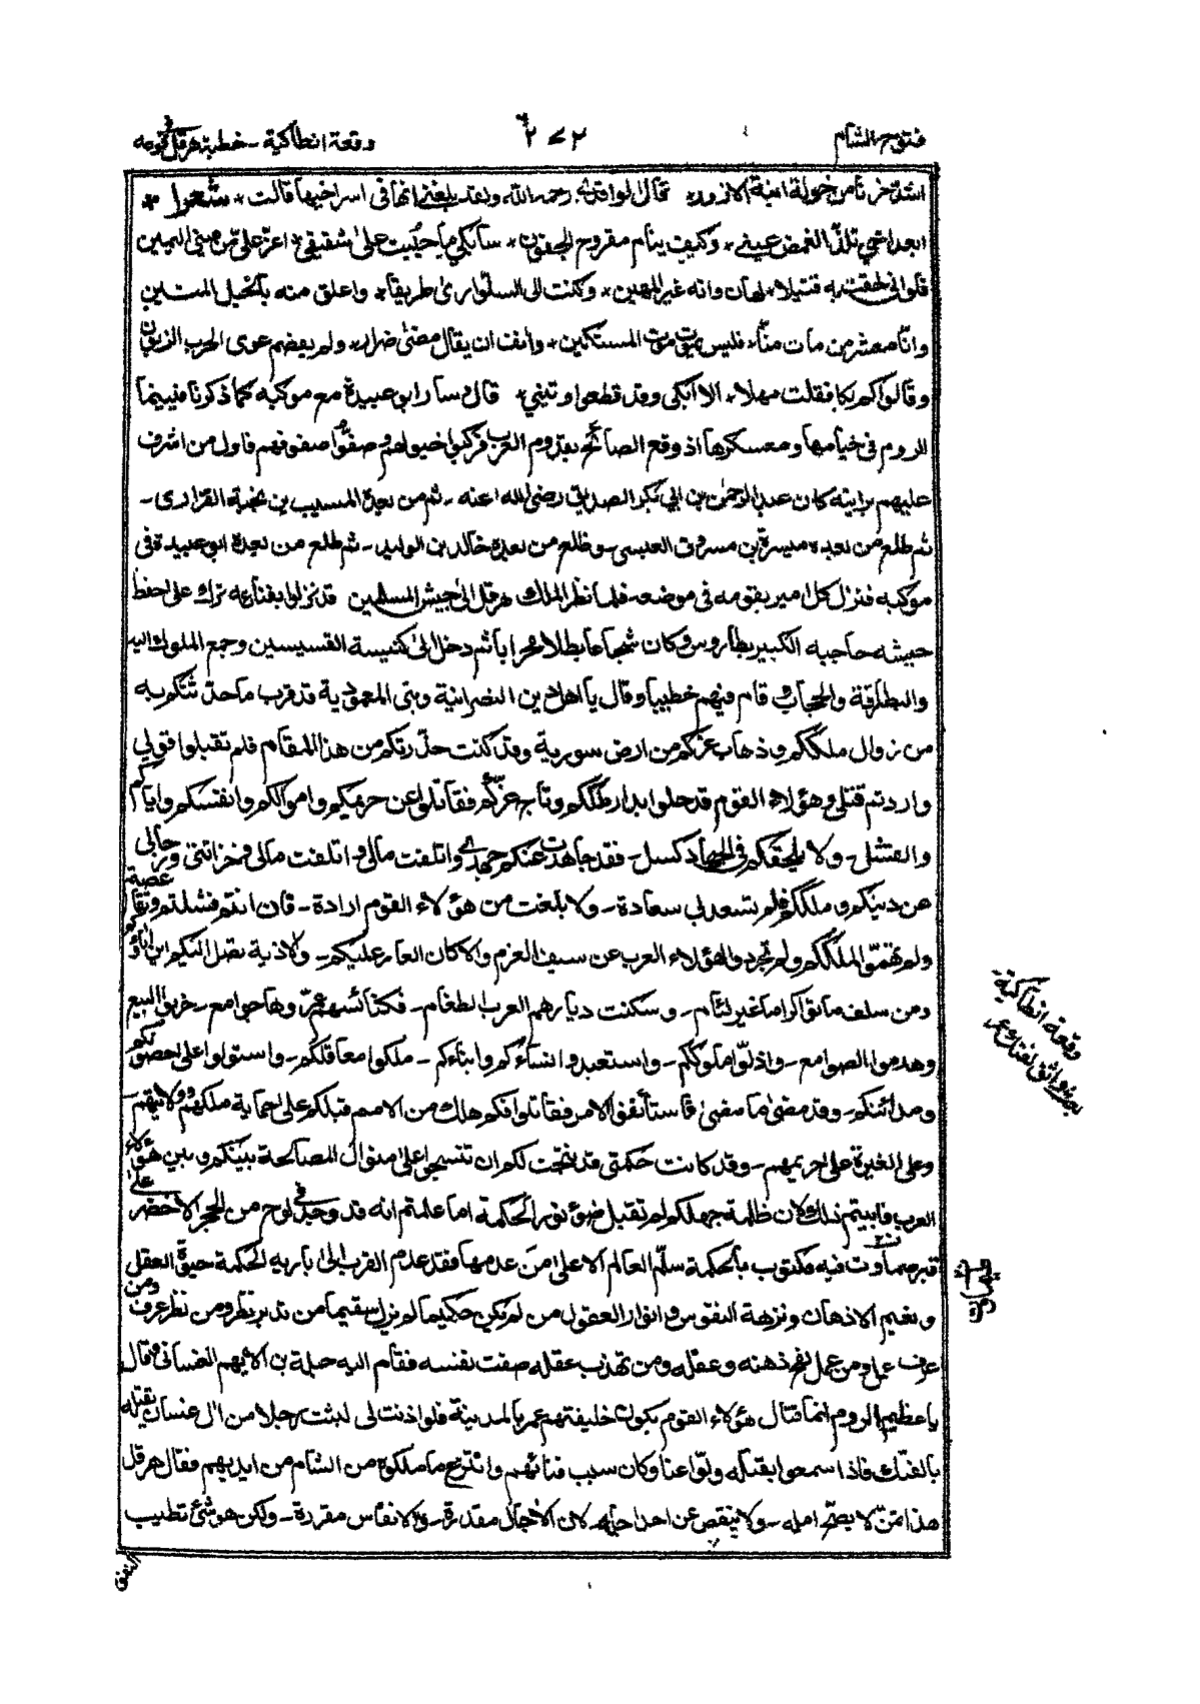 فتوح الشام
٢٧٢
وقعة انطاكية - خطبة هرقل في قومه
اشد حزنا من خولة ابنة الازور * قال الواقدي رحمه الله ولقد بلغني انها في اسر اخيها قالت * شعرا *
ابعد اخي تلذ الغمض عيني * وكيف ينام مقروح الجفون * سأبكي ما حييت على شقيقي * اعز علي من عيني اليمين
فلو اني لحقت به قتيلا * لهان وانه غير المهين * وكنت الى السلو ارى طريقا * واعلق منه بالحبل المتين
وانا معشر من مات منا * فليس يموت موت المستكين * وانفت ان يقال مضى ضرار * ولم يعضم عوى الحرب الزبون
وقالوا كم بكا فقلت مهلا * الا ابكي وقد قطعوا وتيني * قال وسار ابو عبيدة مع موكبه كما ذكرنا فبينما
الروم في خيامها ومعسكرها اذ وقع الصائح بقدوم العرب فركبوا خيولهم وصفوا صفوفهم فاول من اشرف
عليهم برايته كان عبد الرحمن بن ابي بكر الصديق رضي الله عنه - ثم من بعده المسيب بن نجبة الفزاري -
ثم طلع من بعده ميسرة بن مسروق العبسي - وطلع من بعده خالد بن الوليد - ثم طلع من بعده ابو عبيدة في
موكبه فنزل كل امير بقومه في موضعه - فلما نظر الملك هرقل الى جيش المسلمين قد نزلوا بفنائه ترك على حفظ
جيشه حاجبه الكبير بطاروس وكان شجاعا بطلا مجرابا ثم دخل الى كنيسة القسيسين وجمع الملوك اليه
والبطارقة والحجاب و قام فيهم خطيبا وقال يا اهل دين النصرانية وبني المعمودية قد قرب ما حدثتكم به
من زوال ملككم وذهاب عزكم من ارض سورية وقد كنت حذرتكم من هذا المقام فلم تقبلوا قولي
واردتم قتلي وهؤلاء القوم قد حلوا بدار ملككم وتاج عزكم فقاتلوا عن حريمكم واموالكم وانفسكم واياكم
والفشل - ولا يلحقكم في الجهاد كسل - فقد جاهدت عنكم جهدي واتلفت مالي و اتلفت مالي وخزائني ورجالي
عن دينكم وملككم فلم تسعد لي سعادة - ولا بلغت من هؤلاء القوم ارادة - فان انتم فشلتم وتقاعصتم
ولم تهتموا لملككم ولم تجردوا لهؤلاء العرب عن سيف العزم والا كان العار عليكم - والاذية تصل اليكم اين اباؤكم
ومن سلف ماتوا كراما غير لئام - وسكنت ديارهم العرب الطغام - فكنائسهم غيروها جوامع - خربوا البيع
وهدموا الصوامع - واذلوا ملوككم - واستعبدوا نساءكم وابناءكم - ملكوا معاقلكم - واستولوا على حصونكم
ومدائنكم - وقد مضى ما مضى فاستأنفوا الامر فقاتلوا فكم هلك من الامم قبلكم على حماية ملكهم وولايتهم
وعلى الغيرة على حريمهم - وقد كانت حكمتي قد نتجت لكم ان تنسجوا على منوال المصالحة بينكم وبين هؤلاء
العرب فابيتم ذلك وكان ظلمة جهلكم لم تقبل ضوء نور الحكمة اما علمتم انه قد وجد في لوح من الحجر الاخضر على
قبر صماوت فيه مكتوب بالحكمة سلم العالم الاعلى من عدمها فقد عدم القرب الى باريه الحكمة حيوة العقل
ونعيم الاذهان ونزهة النفوس وانوار العقول من لم يكن حكيما لم يزل سقيما من تدبر نظر ومن نظر عرف ومن
عرف عمل ومن عمل لقح ذهنه وعقله ومن تهذب عقله صفت نفسه فقام اليه جبلة بن الايهم الغساني وقال
يا عظيم الروم انما قتال هؤلاء القوم بكون خليفتهم عمر بالمدينة فلو اذنت لي لبثت رجلا من ال غسان يقتله
بالفتك فاذا سمعوا بقتله ولوا عنا وكان سبب فنائهم وانتزع ما ملكوه من الشام من ايديهم فقال هرقل
هذا تمن لا يصح امله - ولا ينقص عن احد اجله - لان الاجال مقدرة - والانفاس مقررة - ولكن هو شئ تطيب
النفس
وقعة انطاكية
بعث واثق لفتك عمر
صماوت